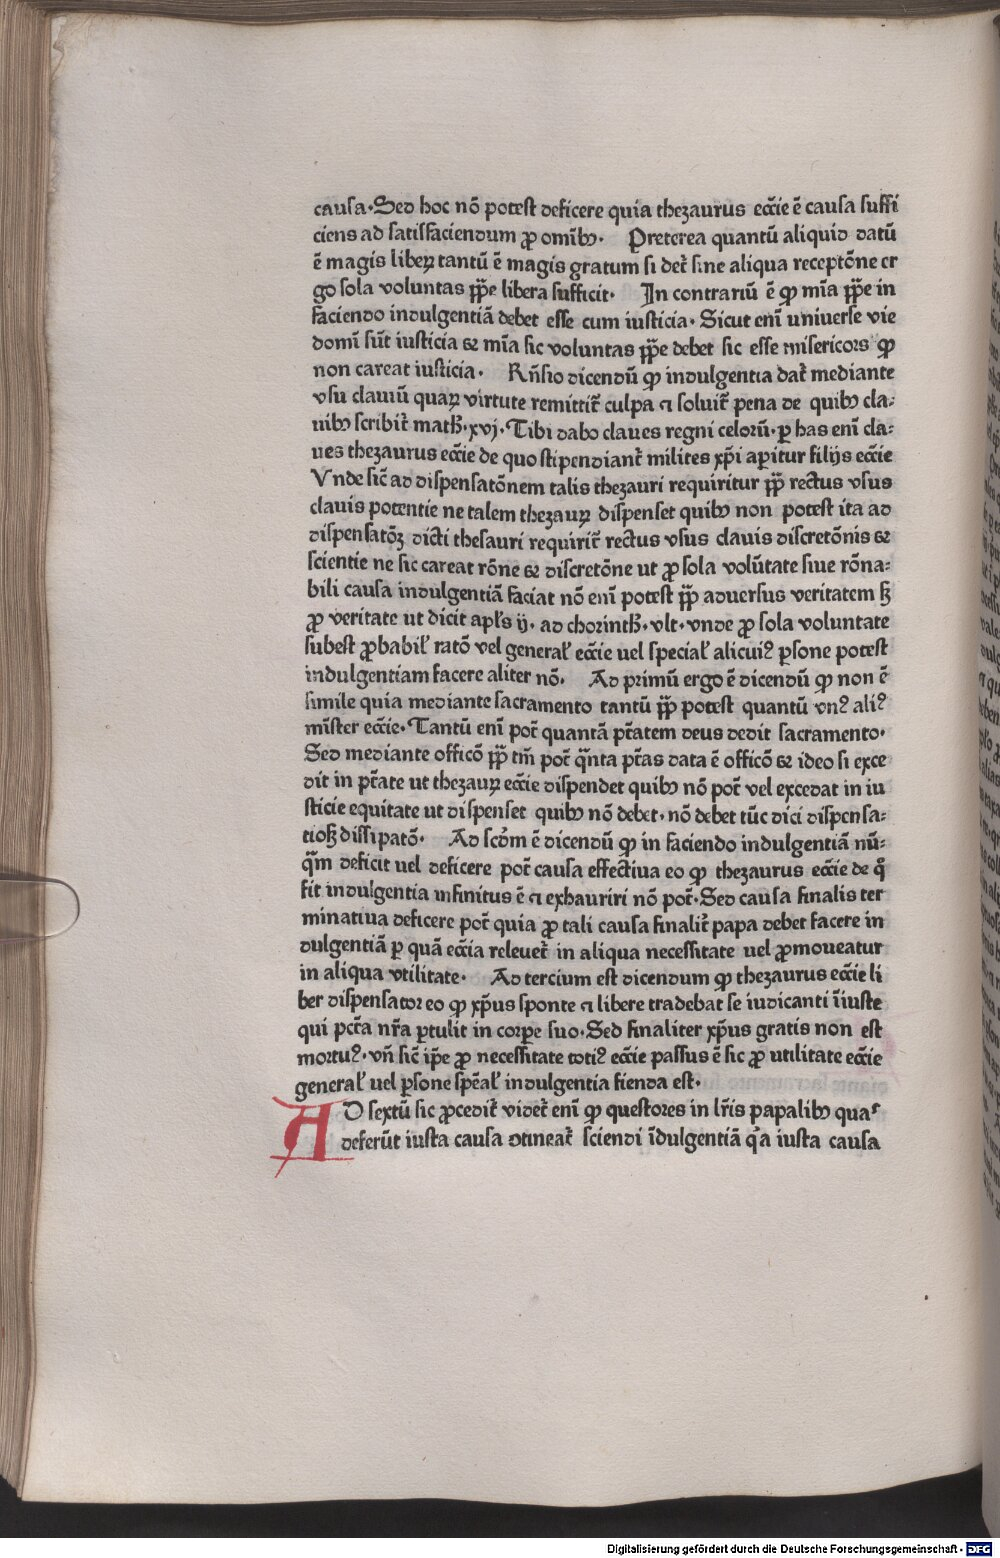 causa·Sed hoc nō potest deficere quia thezaurus ecc̄ie ē causa suffi
ciens ad satisfaciendum ꝓ omībꝫ· Preterea quantū aliquid datū
ē magis liberꝝ tantū ē magis gratum si det᷑ sine aliqua receptōne er
go sola voluntas pp̄e libera sufficit· In contrariū ē ꝙ mīa pp̄e in
faciendo indulgentiā debet esse cum iusticia· Sicut enī uniuerse vie
domī sūt iusticia ⁊ mīa sic voluntas pp̄e debet sic esse misericors ꝙ
non careat iusticia· Rn̄sio dicendū ꝙ indulgentia dat᷑ mediante
vsu clauiū quaꝝ virtute remittit᷑ culpa ⁊ soluit᷑ pena de quibꝫ cla⸗
uibꝫ scribit᷑ math̄·xvj·Tibi dabo claues regni celorū·ꝑ has enī cla⸗
ues thezaurus ecc̄ie de quo stipendiant᷑ milites xp̄i aꝑitur filijs ecc̄ie
Vnde sic̄ ad dispensatōnem talis thezauri requiritur pp̄ rectus vsus
clauis potentie ne talem thezauꝝ dispenset quibꝫ non potest ita ad
dispensatōꝫ dicti thesauri requirit᷑ rectus vsus clauis discretōnis ⁊
scientie ne sic careat rōne ⁊ discretōne ut ꝓ sola volūtate siue rōna⸗
bili causa indulgentiā faciat nō enī potest pp̄ aduersus veritatem sꝫ
ꝓ veritate ut dicit apl's ij· ad chorinth̄· vlt· vnde ꝓ sola voluntate
subest ꝓbabil' ratō vel general' ecc̄ie uel special' alicuiꝰ ꝑsone potest
indulgentiam facere aliter nō· Ad primū ergo ē dicendū ꝙ non ē
simile quia mediante sacramento tantū pp̄ potest quantū vnꝰ aliꝰ
mīster ecc̄ie·Tantū enī pot᷑ quantā ptātem deus dedit sacramento·
Sed mediante officō pp̄ tm̄ pot᷑ qn̄ta ptās data ē officō ⁊ ideo si exce
dit in ptāte ut thezauꝝ ecc̄ie dispendet quibꝫ nō pot᷑ vel excedat in iu
sticie equitate ut dispenset quibꝫ nō debet·nō debet tūc dici dispensa⸗
tioꝫ dissipatō· Ad scd̄m ē dicendū ꝙ in faciendo indulgentiā nū⸗
qm̄ deficit uel deficere pot᷑ causa effectiua eo ꝙ thezaurus ecc̄ie de q̄
fit indulgentia infinitus ē ⁊ exhauriri nō pot᷑·Sed causa finalis ter
minatiua deficere pot᷑ quia ꝓ tali causa finalit᷑ papa debet facere in
dulgentiā ꝑ quā ecc̄ia releuet᷑ in aliqua necessitate uel ꝓmoueatur
in aliqua vtilitate· Ad tercium est dicendum ꝙ thezaurus ecc̄ie li
ber dispensator eo ꝙ xp̄us sponte ⁊ libere tradebat se iudicanti īiuste
qui pct̄a nr̄a ꝑtulit in corꝑe suo·Sed finaliter xp̄us gratis non est
mortuꝰ· vn̄ sic̄ ip̄e ꝓ necessitate totiꝰ ecc̄ie passus ē sic ꝓ utilitate ecc̄ie
general' uel ꝑsone sp̄eal' indulgentia fienda est·
AD sextū sic ꝓcedit᷑ videt᷑ enī ꝙ questores in lr̄is papalibꝫ quas
deferūt iusta causa ↄtineat᷑ sciendi īdulgentiā q̄a iusta causa
Digitalisierung gefördert durch die Deutsche Forschungsgemeinschaft - DFG